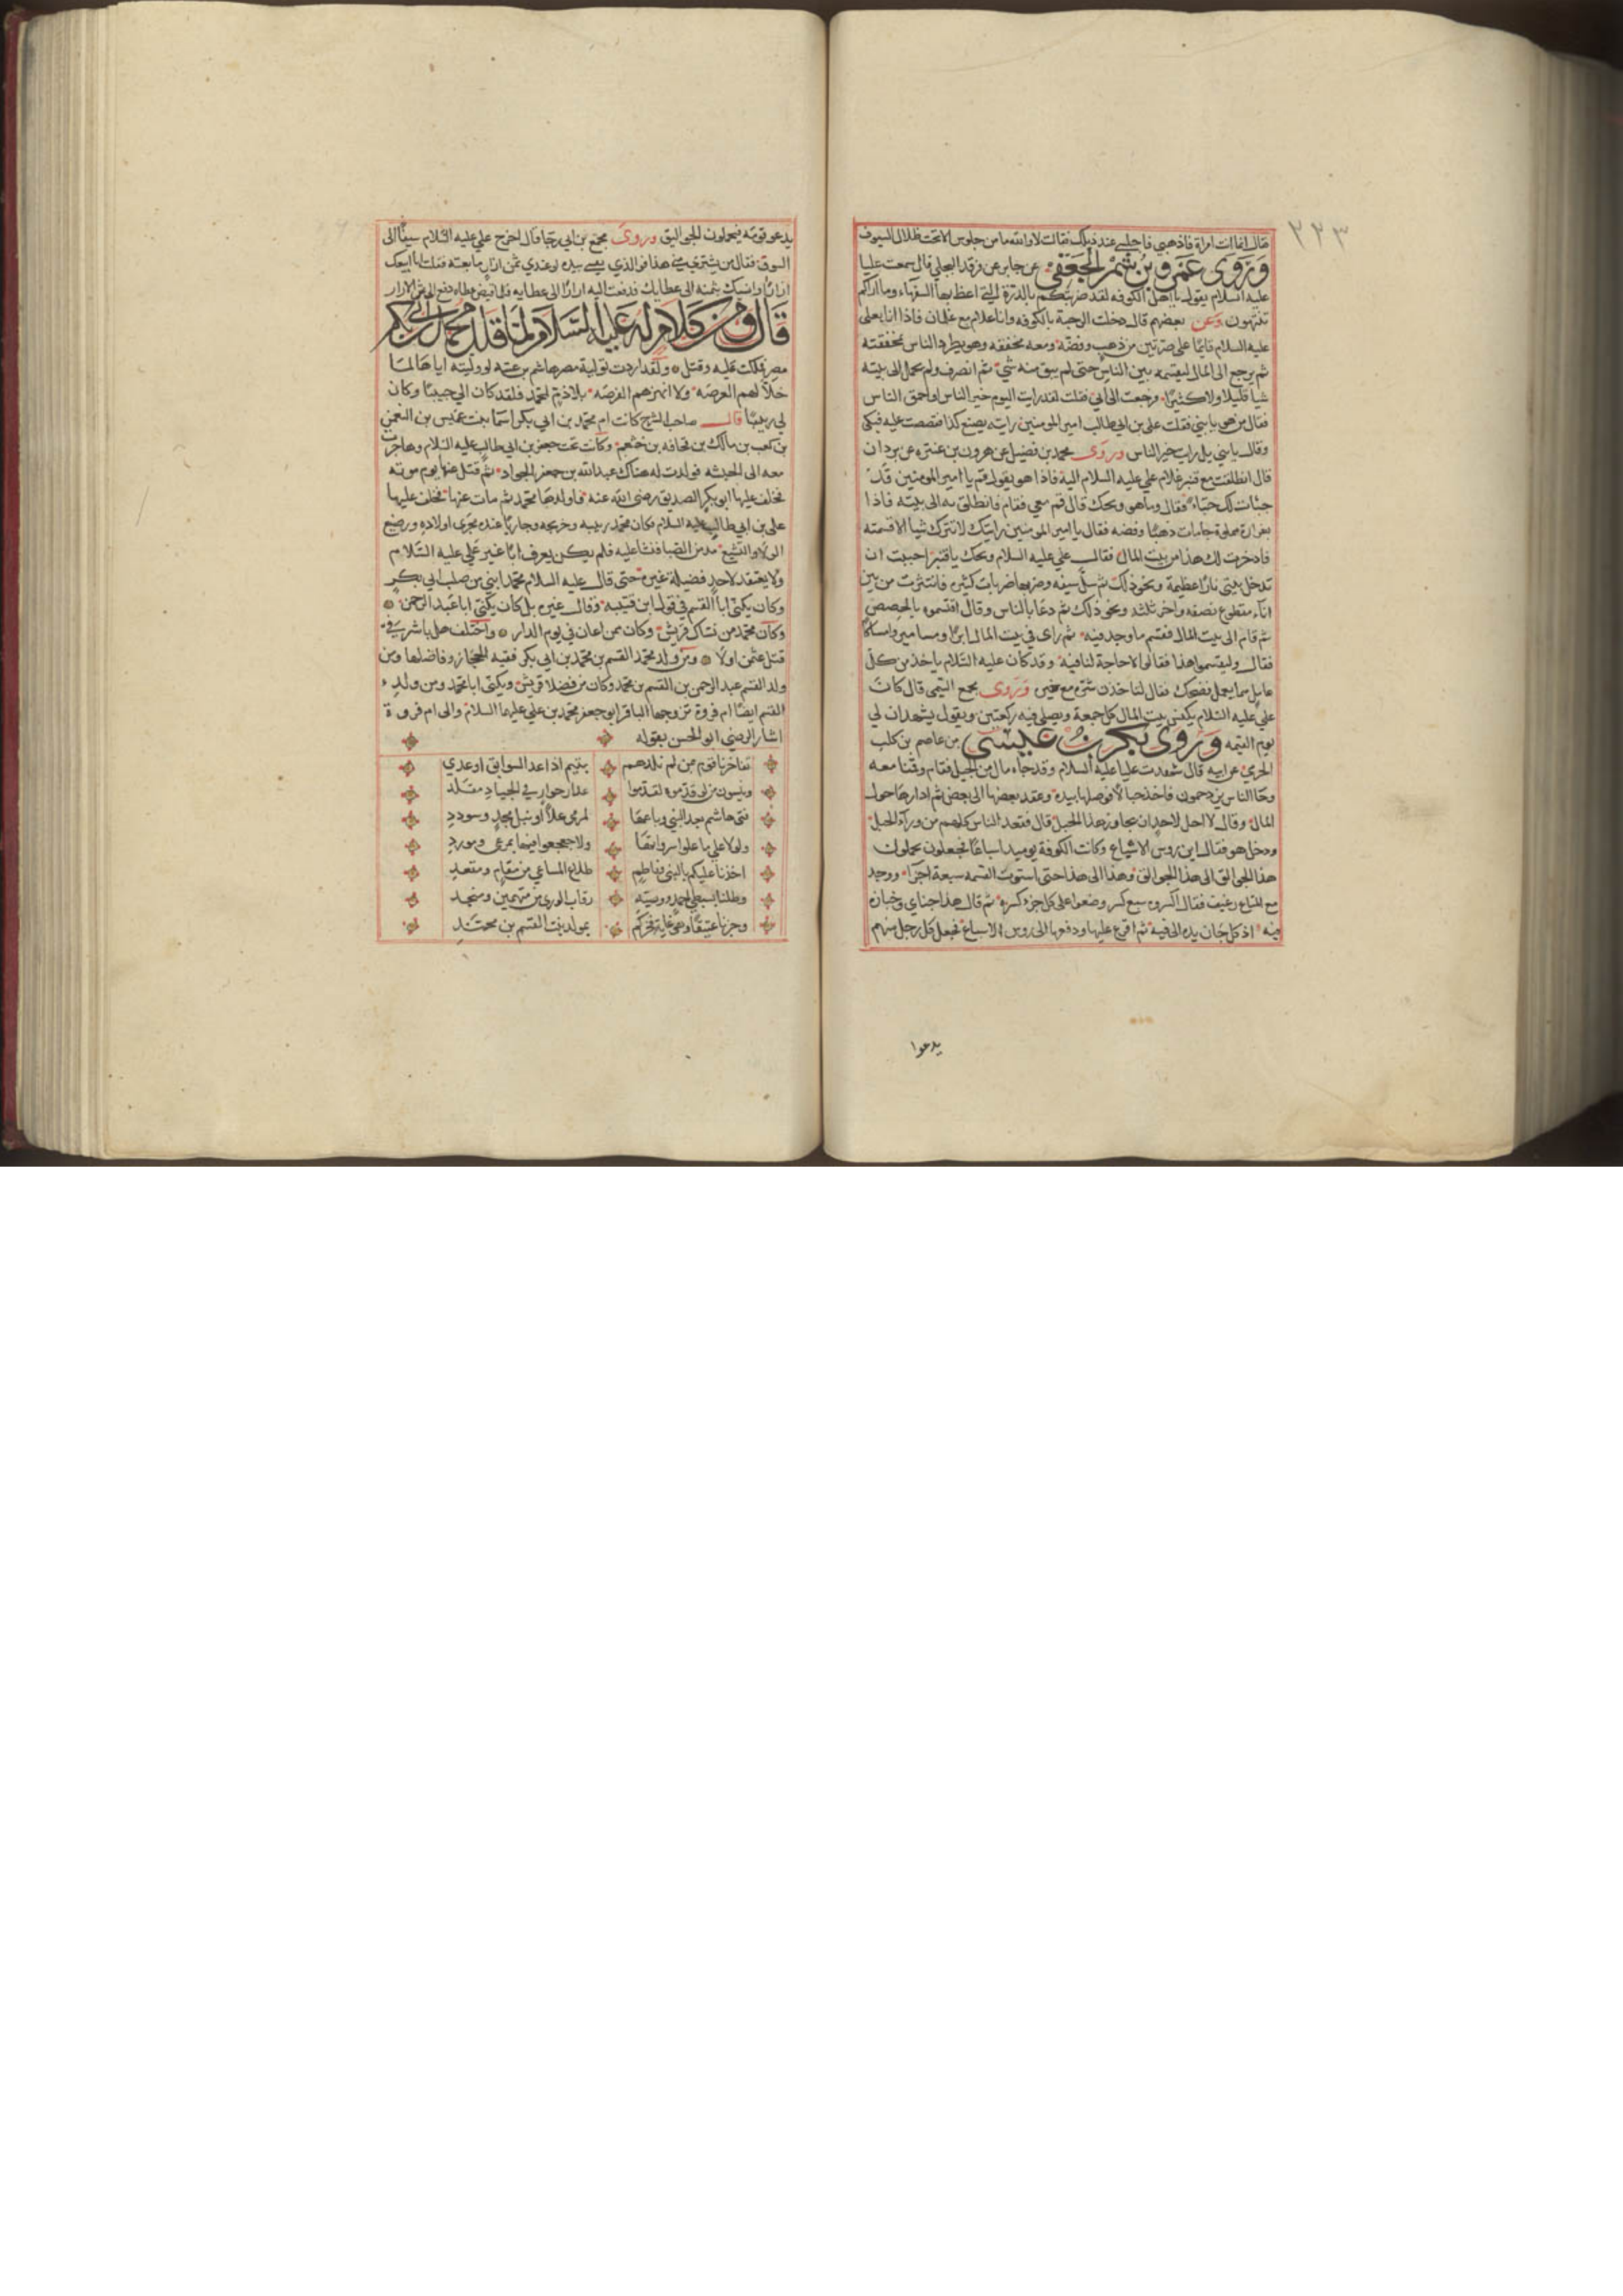 ٢٢٣
فقال انما انت امراة فاذهبي فاجلسي عند ذيلك فقالت لا والله ما من جلوس الا تحت ظلال السيوف
وروى عمرو بن شمر الجعفي عن جابر عن فرقد البجلي قال سمعت عليا
عليه السلام يقول يا اهل الكوفه لقد ضربتكم بالدرة التي اعظ بها السفهاء وما اراكم
تنتهون وعن بعضهم قال دخلت الرحبة بالكوفه وانا غلام مع غلمان فاذا انا بعلي
عليه السلام قايما على صرتين من ذهب وفضة ومعه مخفقه وهو يطرد الناس بمخفقته
ثم يرجع الى المال ليقسمه بين الناس حتى لم يبق منه شي ثم انصرف ولم يحمل الى بيته
شيا قليلا ولا كثيرا ورجعت الى ابي فقلت لقد رايت اليوم خير الناس او احمق الناس
فقال من هو يا بني فقلت علي بن ابي طالب امير المومنين رايته يصنع كذا فقصصت عليه فبكى
وقال يا بني بل رايت خير الناس وروى محمد بن فضيل عن هرون بن عنتره عن بردان
قال انطلقت مع قنبر غلام علي عليه السلام اليه فاذا هو يقول قم يا امير المومنين قد
خبات لك خباء فقال وما هو ويحك قال قم معي فقام فانطلق به الى بيته فاذا
بغرارة مملوة جامات ذهبا وفضه فقال يا امير المومنين رايتك لا تترك شيا الا قسمته
فادخرت لك هذا من بيت المال فقال علي عليه السلام ويحك يا قنبر احببت ان
تدخل بيتي نارا عظيمة ونحو ذلك ثم سل سيفه وضربها ضربات كثيره فانتثرت من بين
اناء مقطوع نصفه واخر ثلثه ونحو ذلك ثم دعا بالناس وقال اقتسموه بالحصص
ثم قام الى بيت المال فقسم ما وجد فيه ثم راى في بيت المال ابرا ومسامير
فقال وليقسموا هذا فقالوا لا حاجة لنا فيه وقد كان عليه السلام ياخذ من كل
عامل مما يعمل فضحك فقال لتاخذن شره مع خيره وروى مجمع التيمي قال كان
علي عليه السلام يكنس بيت المال كل جمعة ويصلي فيه ركعتين ويقول يشهدان لي
يوم القيمه وروى بكر بن عيسى عن عاصم بن كليب
الجرمي عن ابيه قال شهدت عليا عليه السلام وقد جاه مال من الجبل فقام وقمنا معه
وجا الناس يزدحمون فاخذ حبالا فوصلها بيده وعقد بعضها الى بعض ثم ادارها حول
المال وقال لا احل لاحد ان يجاوز هذا الحبل قال فقعد الناس كلهم من وراء الحبل
ودخل هو فقال اين روس الاسباع وكانت الكوفة يوميد اسباعا فجعلون يحملون
هذا الجوالق الى هذا الجوالق وهذا الى هذا حتى استوت القسمه سبعة اجزا ووجد
مع المتاع رغيف فقال اكسروه سبع كسر وضعوا على كل جزء كسره ثم قال هذا جناي وخياره
فيه اذ كل جان يده الى فيه ثم اقرع عليها ودفعها الى روس الاسباع فجعل كل رجل منهم
يدعوا
يدعو قومه فيحملون الجواليق وروى مجمع بن ابي رجا قال اخرج علي عليه السلام سيفا الى
السوق فقال من يشتري مني هذا فو الذي نفسي بيده لو عندي ثمن ازار ما بعته فقلت انا ابيعك
ازارا وانسيك بثمنه الى عطايك فدفعت اليه ازارا الى عطايه فلما قبض عطاه دفع الي ثمن الازار
قال ومن كلام له عليه السلام لما قلد محمد بن ابي بكر
مصر فملكت عليه وقتل ولقد اردت تولية مصر هاشم بن عتبه لو وليته اياها لما
خلا لهم العرصه ولا انهزهم الفرصه بلا ذم لمحمد فلقد كان الي حبيبا وكان
لي ربيبا قال صاحب الشرح كانت ام محمد بن ابي بكر اسما بنت عميس بن النعمن
بن كعب بن مالك بن قحافه بن خثعم وكانت تحت جعفر بن ابي طالب عليه السلام وهاجرت
معه الى الحبشه فولدت له هناك عبد الله بن جعفر الجواد ثم قتل عنها يوم موته
فخلف عليها ابو بكر الصديق رضي الله عنه فاولدها محمد ثم مات عنها فخلف عليها
علي بن ابي طالب عليه السلام فكان محمد ربيبه وخريجه وجاريا عنده مجرى اولاده ورضيع
الولاء والتشيع مذ من الصبا فنشا عليه فلم يكن يعرف ابا غير علي عليه السلام
ولا يعتقد لاحد فضيلة غيره حتى قال عليه السلام محمد ابني من صلب ابي بكر
وكان يكنى ابا القسم في قول ابن قتيبه وقال غيره بل كان يكنى ابا عبد الرحمن
وكان محمد من نساك قريش وكان ممن اعان في يوم الدار واختلف هل باشر في
قتل عثمن اولا ومن ولد محمد القسم بن محمد بن ابي بكر فقيه الحجاز وفاضلها ومن
ولد القسم عبد الرحمن بن القسم بن محمد وكان من فضلا قريش ويكنى ابا محمد ومن ولد
القسم ايضا ام فروة تزوجها الباقر ابو جعفر محمد بن علي عليهما السلام والى ام فروة
اشار الرضي ابو الحسن بقوله
تفاخرنا قوم من لم نلدهم بتيم اذا عد السوابق او عدي
وينسون من لو قدموه لقدموا عذار جواد في الجياد مقلد
فتى هاشم بعد النبي وباعها لمرمى علا او نيل مجد وسودد
ولولا علي ما علوا سرواتها ولا جعجعوا منها بمرعى ومورد
اخذنا عليكم بالنبي وفاطم طلاع المساعي من مقام ومقعد
وطلنا بسبطي احمد ووصيه رقاب الورى من متهمين ومنجد
وحزنا عتيقا وهو غاية فخركم بمولد بنت القسم بن محمد